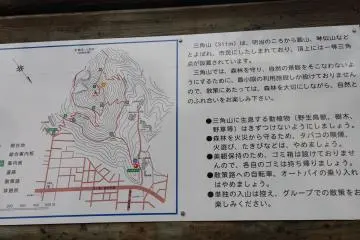 三角山(311m)は、明治のころから眺山、琴似山など
とよばれ、市民にしたしまれており、頂上には一等三角
点が設置されています。
三角山では、森林を守り、自然の景観をそこなわないよ
うにするために、最小限の利用施設しか設けておりません
ので、散策にあたっては、森林を大切にしながら、自然と
のふれ合いをお楽しみ下さい。
●三角山に生息する動植物(野生鳥獣、樹木、
野草等)はきずつけないようにしましょう。
●森林を火災から守るため、タバコの喫煙、
火遊び、たきびなどは、やめましょう。
●美観保持のため、ゴミ箱は設けておりませ
んので、各自のゴミは持ち帰りましょう。
●散策路への自転車、オートバイの乗り入れ
はやめましょう。
●単独の入山は控え、グループでの散策をお
楽しみください。
総合案内板
案内板
散策路